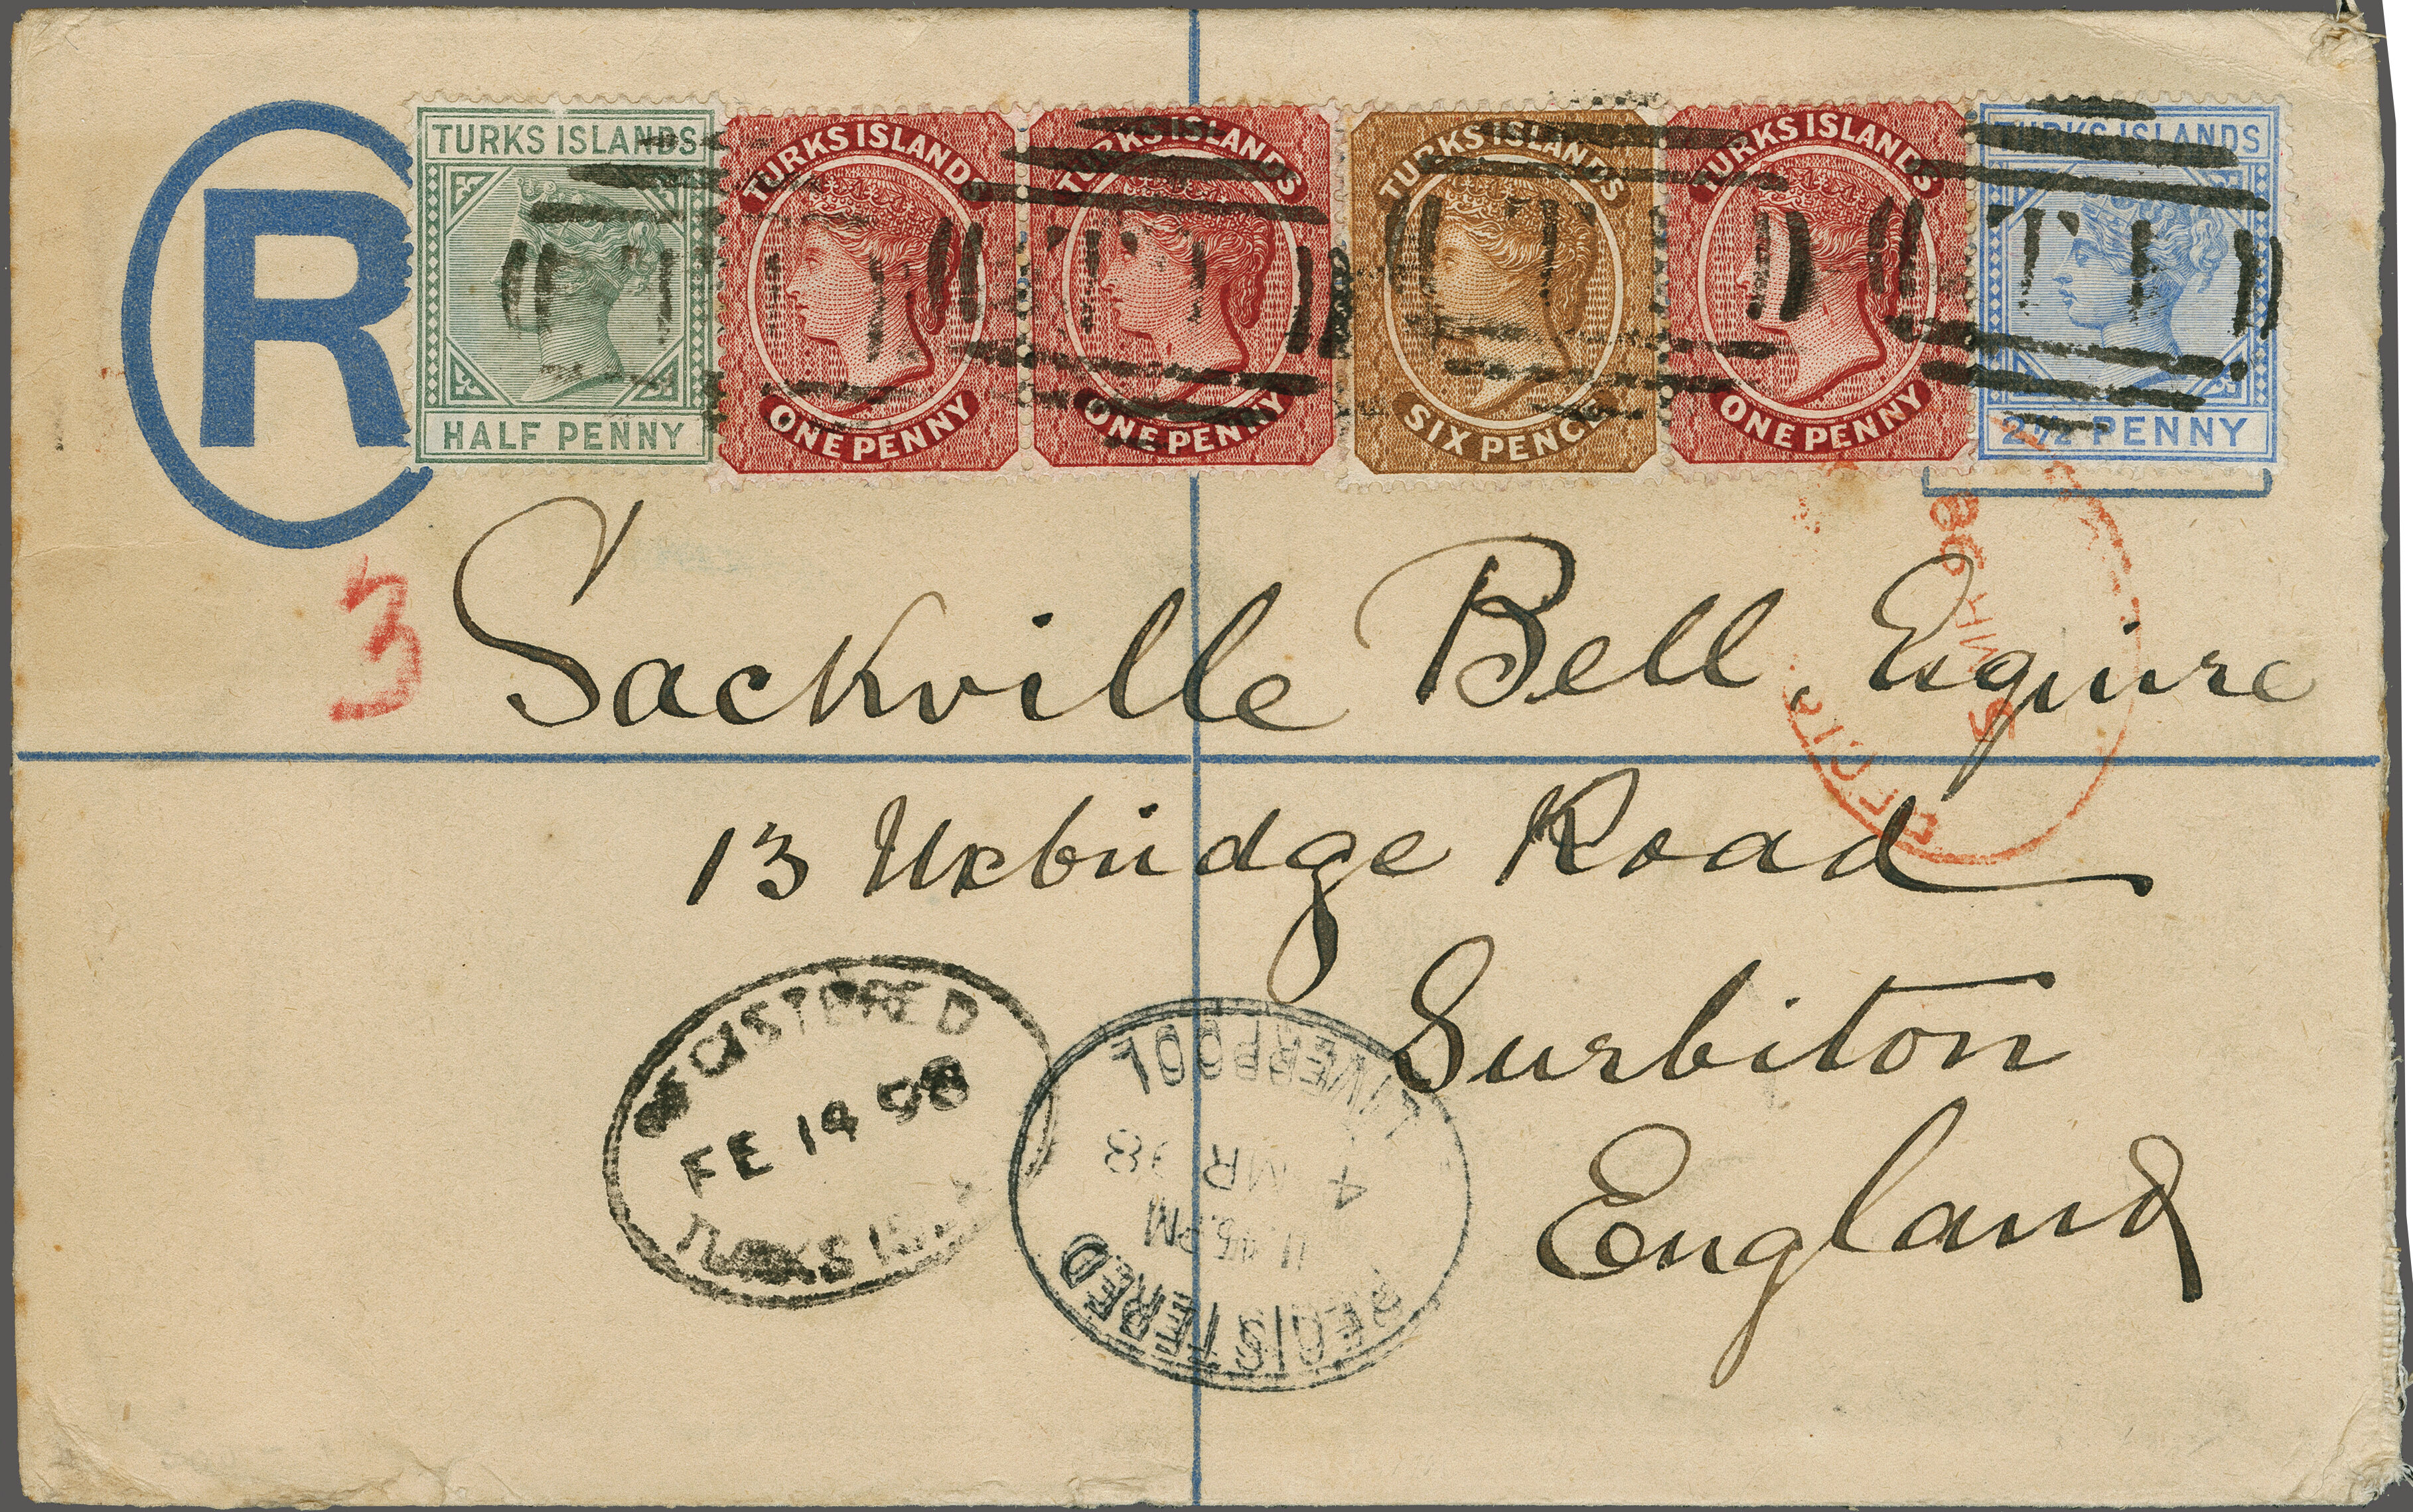 R
TURKS ISLANDS
HALF PENNY
TURKS ISLANDS
ONE PENNY
TURKS ISLANDS
ONE PENNY
TURKS ISLANDS
SIX PENCE
TURKS ISLANDS
ONE PENNY
TURKS ISLANDS
2 1/2 PENNY
T I
T I
T
T I
3
Sackville Bell, Esquire
98
MR
5
13 Uxbridge Road
Surbiton
England
REGISTERED
FE 14 98
TURKS
REGISTERED
11.45.PM
4 MR 98
LIVERPOOL